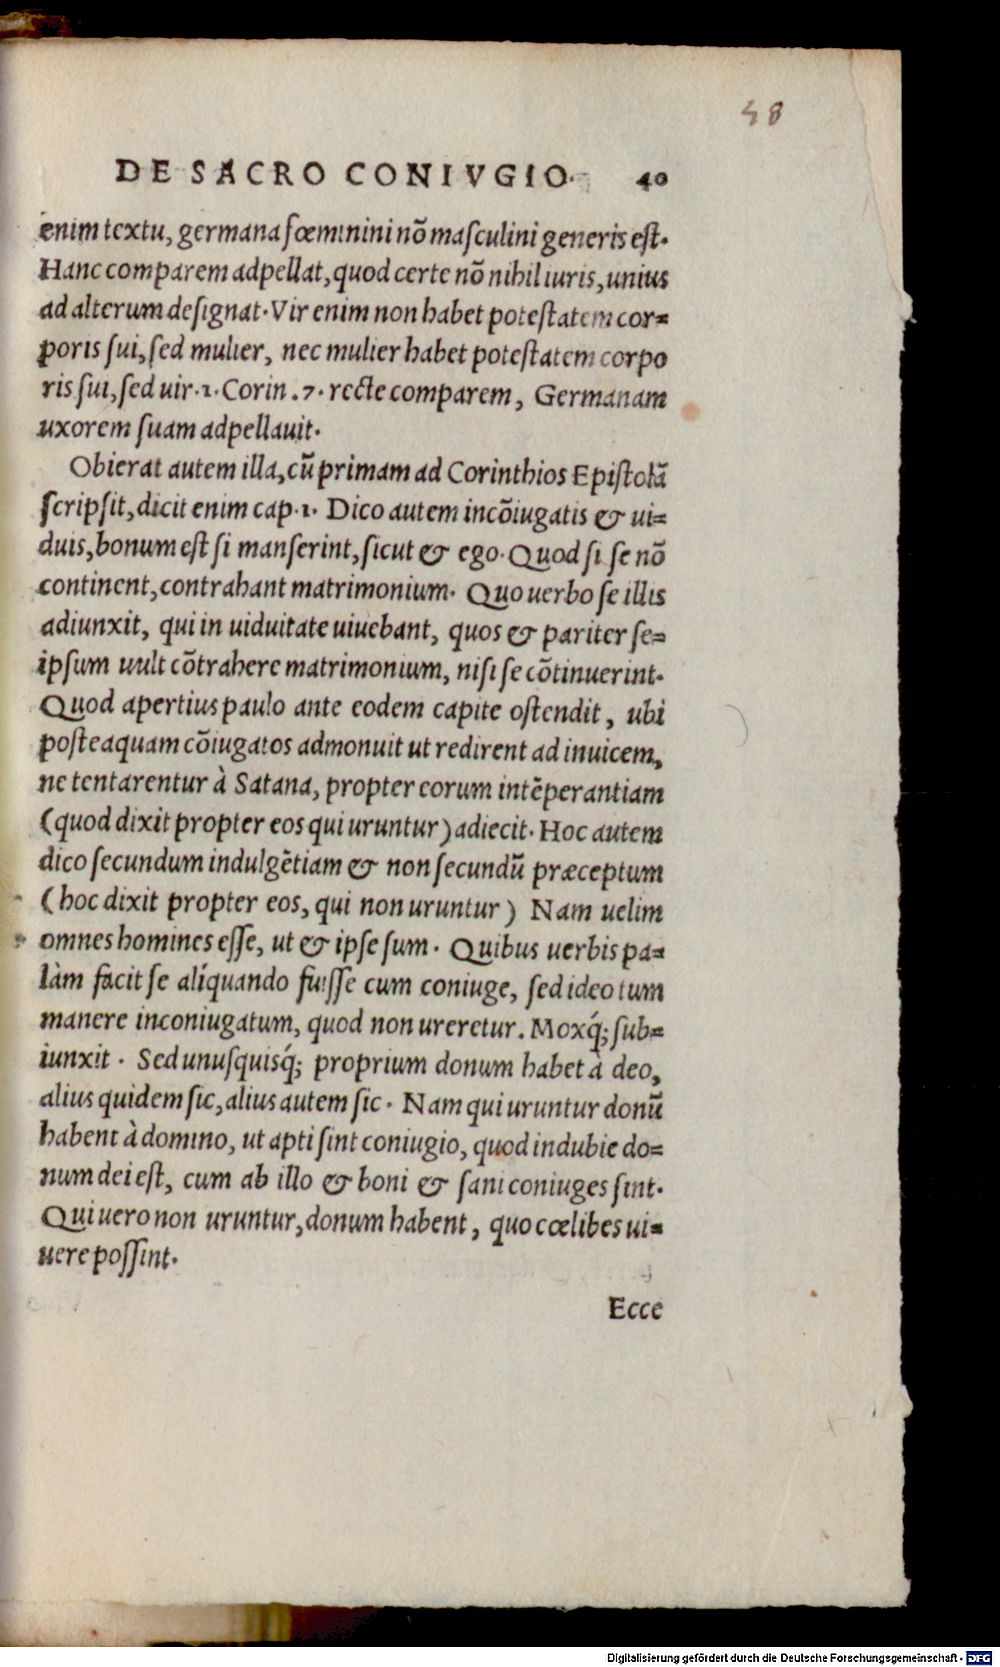 48
DE SACRO CONIVGIO. 40
enim textu, germana fœminini nõ masculini generis est.
Hanc comparem adpellat, quod certe nõ nihil iuris, unius
ad alterum designat. Vir enim non habet potestatem cor=
poris sui, sed mulier, nec mulier habet potestatem corpo
ris sui, sed uir. 1. Corin. 7. recte comparem, Germanam
uxorem suam adpellauit.
Obierat autem illa, cũ primam ad Corinthios Epistolã
scripsit, dicit enim cap. 1. Dico autem incõiugatis & ui=
duis, bonum est si manserint, sicut & ego. Quod si se nõ
continent, contrahant matrimonium. Quo uerbo se illis
adiunxit, qui in uiduitate uiuebant, quos & pariter se=
ipsum uult cõtrahere matrimonium, nisi se cõtinuerint.
Quod apertius paulo ante eodem capite ostendit, ubi
posteaquam cõiugatos admonuit ut redirent ad inuicem,
ne tentarentur à Satana, propter eorum intẽperantiam
(quod dixit propter eos qui uruntur) adiecit. Hoc autem
dico secundum indulgẽtiam & non secundũ præceptum
(hoc dixit propter eos, qui non uruntur) Nam uelim
omnes homines esse, ut & ipse sum. Quibus uerbis pa=
làm facit se alíquando fuisse cum coniuge, sed ideo tum
manere inconiugatum, quod non ureretur. Moxq́; sub=
iunxit. Sed unusquisq́; proprium donum habet à deo,
alius quidem sic, alius autem sic. Nam qui uruntur donũ
habent à domino, ut apti sint coniugio, quod indubie do=
num dei est, cum ab illo & boni & sani coniuges sint.
Qui uero non uruntur, donum habent, quo cœlibes ui=
uere possint.
Ecce
Digitalisierung gefördert durch die Deutsche Forschungsgemeinschaft - DFG